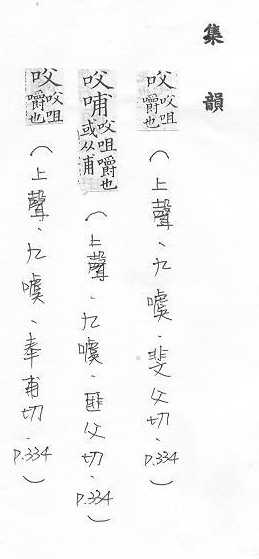 集韻
㕮 㕮咀嚼也 (上聲、九噳、斐父切、P.334)
㕮哺 㕮咀嚼也或从甫 (上聲、九噳、匪父切、P.334)
㕮 㕮咀嚼也 (上聲、九噳、奉甫切、P.334)